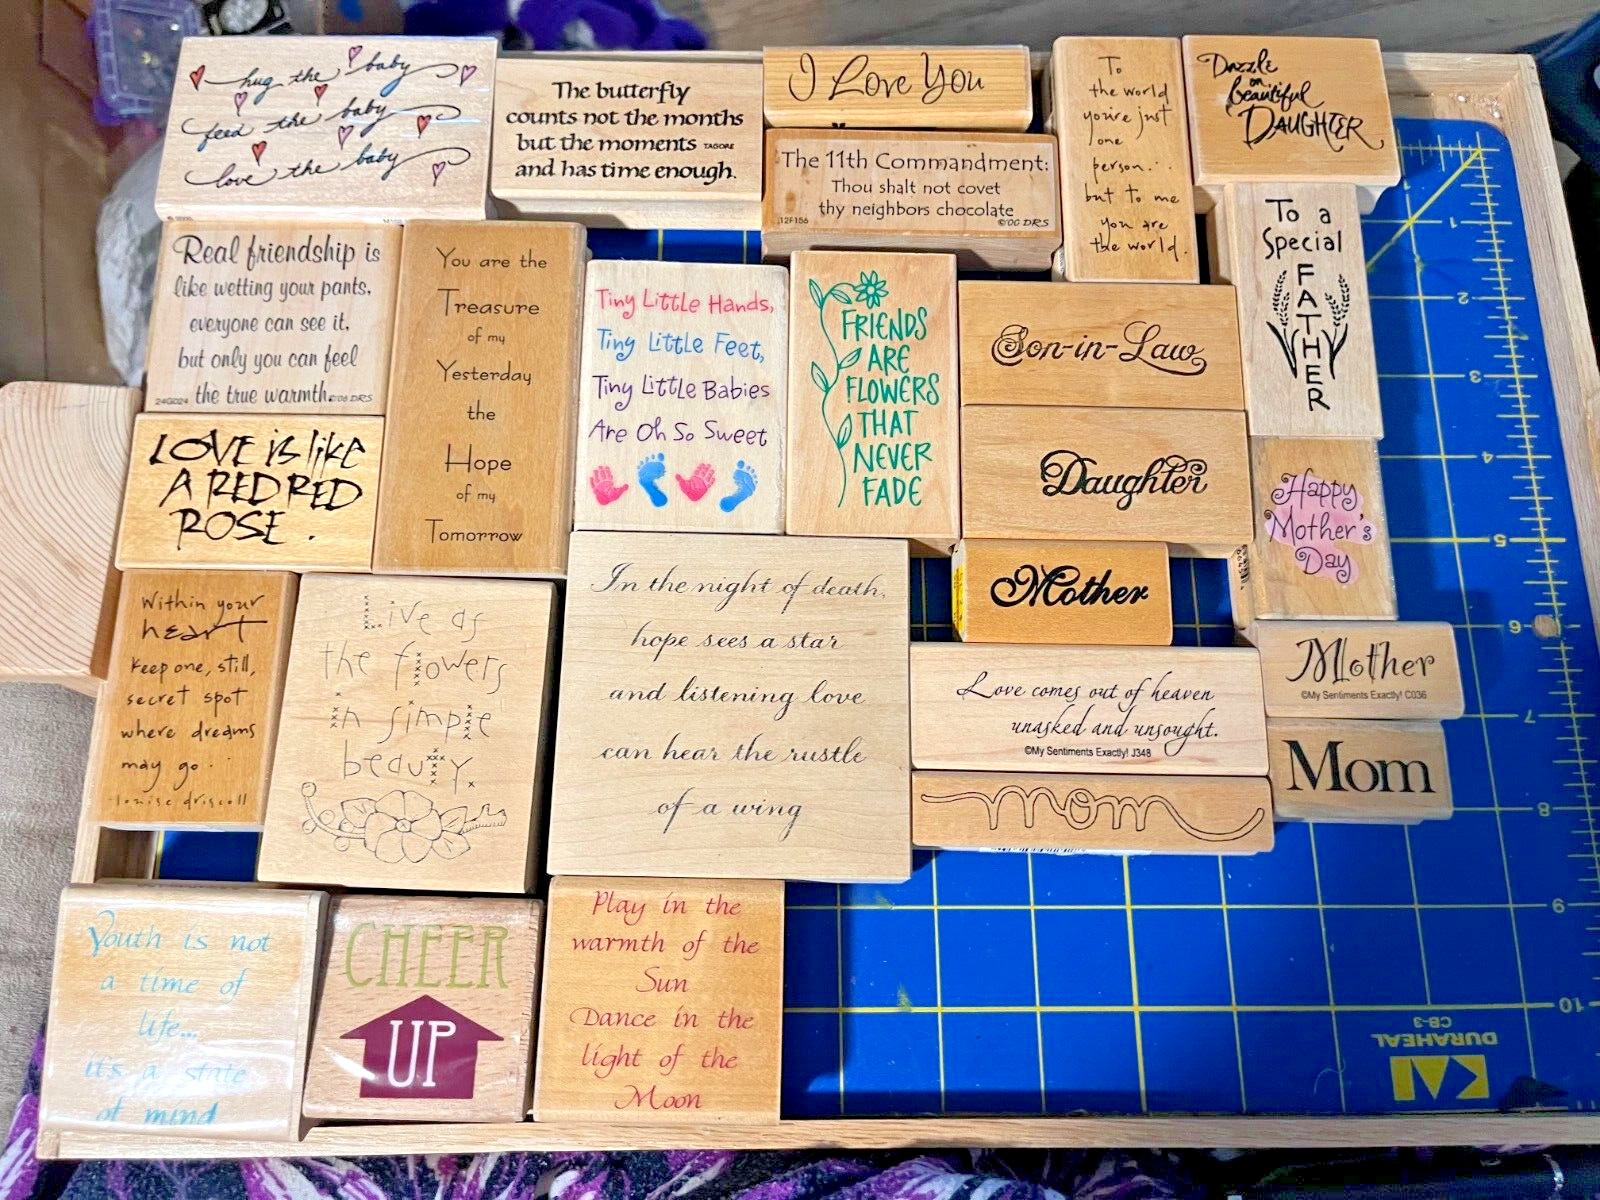 hug the baby
feed the baby
love the baby
The butterfly
counts not the months
but the moments TAGORE
and has time enough.
I Love You
The 11th Commandment:
Thou shalt not covet
thy neighbors chocolate
12F156 ©'00 DRS
To
the world
you're just
one
person...
but to me
you are
the world.
Dazzle
on
beautiful
DAUGHTER
To a
Special
FATHER
Real friendship is
like wetting your pants,
everyone can see it,
but only you can feel
the true warmth.
24G024 ©'06 DRS
You are the
Treasure
of my
Yesterday
the
Hope
of my
Tomorrow
Tiny Little Hands,
Tiny Little Feet,
Tiny Little Babies
Are Oh So Sweet
FRIENDS
ARE
FLOWERS
THAT
NEVER
FADE
Son-in-Law
Daughter
Mother
Happy
Mother's
Day
LOVE is like
A RED RED
ROSE.
Within your
heart
keep one, still,
secret spot
where dreams
may go...
-louise driscoll
Live as
the flowers
in simple
beauty.
In the night of death,
hope sees a star
and listening love
can hear the rustle
of a wing
Love comes out of heaven
unasked and unsought.
©My Sentiments Exactly! J348
mom
Mother
©My Sentiments Exactly! C036
Mom
Youth is not
a time of
life...
it's a state
of mind
CHEER
UP
Play in the
warmth of the
Sun
Dance in the
light of the
Moon
1
2
3
4
5
6
7
8
9
10
11
CB-3
DURAHEAL
KAI